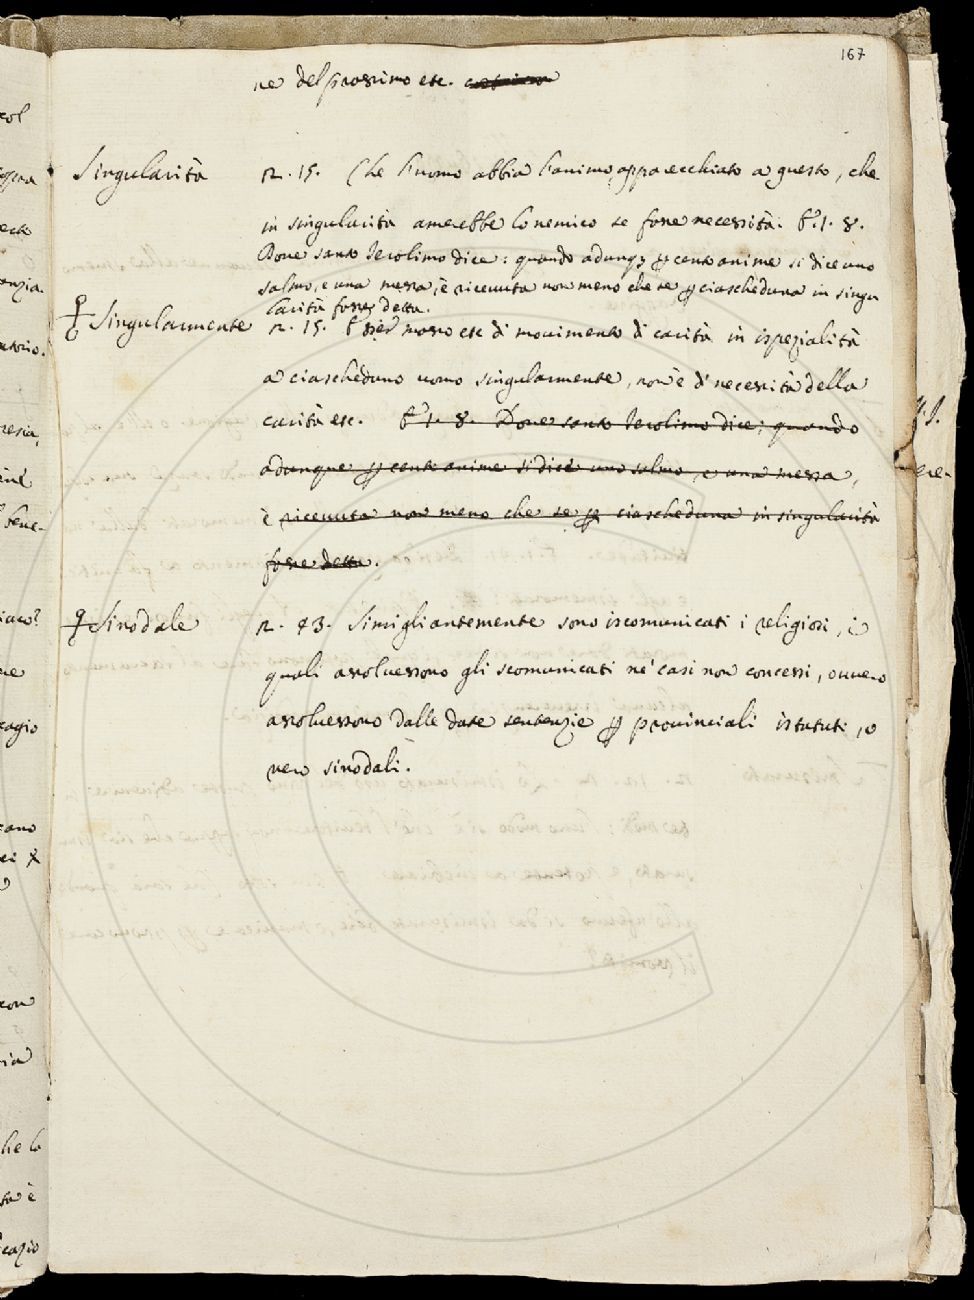 167
ne del prossimo etc.
Singularità n. 15. Che l'uomo abbia l'animo apparecchiato a questo, che
in singularità amerebbe lo nemico se fosse necessità. E 1. 8.
Dove santo Jerolimo dice: quando adunq; ꝑ cento anime si dice uno
salmo, e una messa, è ricevuta non meno che se ꝑ ciascheduna in singu
larità fosse detta.
Singularmente n. 15. mosso etc di movimento di carità in ispezialità
a ciascheduno uomo singularmente, non è di necessità della
carità etc. E 1. 8. Dove santo Jerolimo dice; quando
adunque ꝑ cento anime si dice uno salmo e una messa,
è ricevuta non meno che se ꝑ ciascheduna in singularità
fosse detta.
Sinodale n. 43. Simigliantemente sono iscomunicati i religiosi, i
quali assolvessono gli scomunicati ne' casi non concessi, ovvero
assolvessono dalle date sentenzie ꝑ provinciali istatuti, o
vero sinodali.